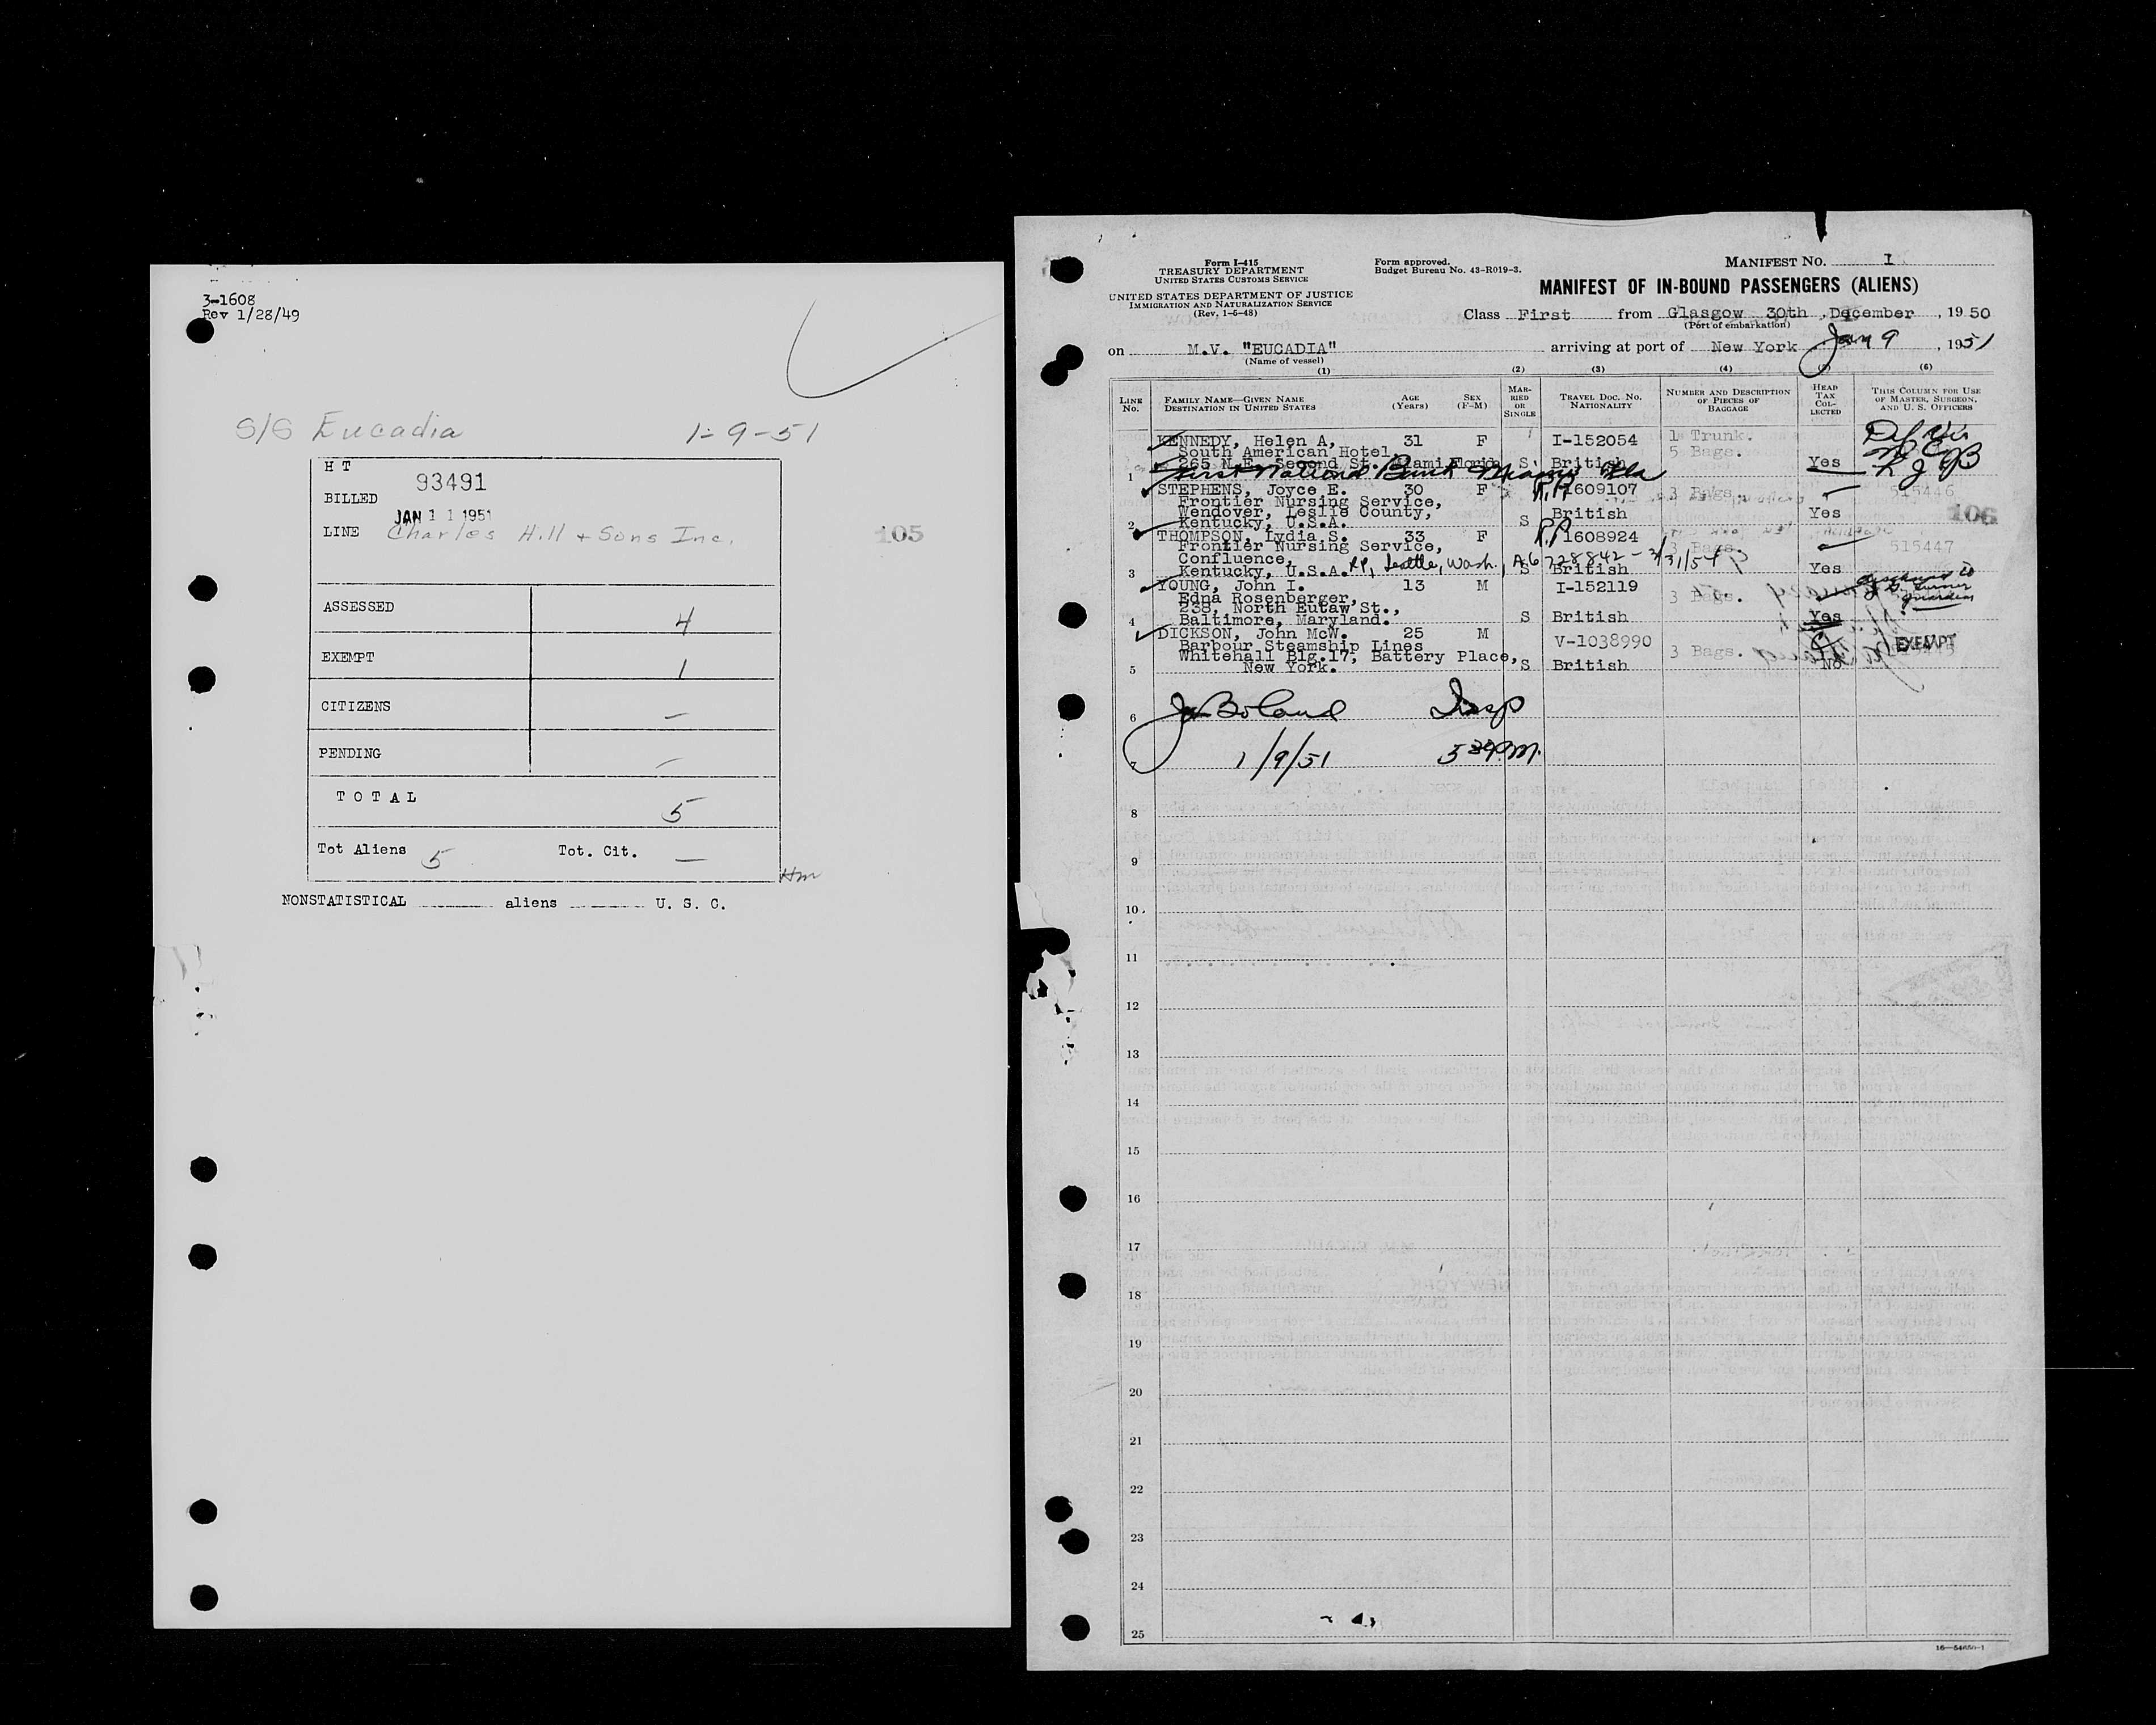 3-1608
Rev 1/28/49
S/S Eucadia 1-9-51
H T
93491
BILLED
JAN 11 1951
LINE Charles Hill + Sons Inc.
105
ASSESSED 4
EXEMPT 1
CITIZENS —
PENDING —
TOTAL 5
Tot Aliens 5 Tot. Cit. —
Hm
NONSTATISTICAL aliens U. S. C.
Form I-415
TREASURY DEPARTMENT
UNITED STATES CUSTOMS SERVICE
UNITED STATES DEPARTMENT OF JUSTICE
IMMIGRATION AND NATURALIZATION SERVICE
(Rev. 1-5-48)
Form approved.
Budget Bureau No. 43-R019-3.
MANIFEST NO. I
MANIFEST OF IN-BOUND PASSENGERS (ALIENS)
Class First from Glasgow 30th December, 1950
(Port of embarkation)
on M.V. "EUCADIA" arriving at port of New York Jan 9, 1951
(Name of vessel)
(1) (2) (3) (4) (6)
LINE No.
FAMILY NAME—GIVEN NAME
DESTINATION IN UNITED STATES
AGE
(Years)
SEX
(F-M)
MARRIED OR SINGLE
TRAVEL DOC. NO.
NATIONALITY
NUMBER AND DESCRIPTION
OF PIECES OF
BAGGAGE
HEAD TAX COLLECTED
THIS COLUMN FOR USE
OF MASTER, SURGEON,
AND U. S. OFFICERS
KENNEDY, Helen A, 31 F I-152054 1 Trunk.
South American Hotel, 5 Bags.
1 265 N.E. Second St. Miami Florida S British Yes
First National Bank Miami Fla
STEPHENS, Joyce E. 30 F P.P. 1609107 3 Bags. 515446
Frontier Nursing Service,
Wendover, Leslie County, British Yes
2 Kentucky, U.S.A. S 106
THOMPSON, Lydia S. 33 F P.P. 1608924
Frontier Nursing Service, 3 Bags. 515447
Confluence,
3 Kentucky, U.S.A. RP, Seattle, Wash., A6 728842 - 3/31/54 S British Yes
YOUNG, John I. 13 M I-152119
Edna Rosenberger, 3 Bags.
238, North Eutaw St., guardian
4 Baltimore, Maryland. S British Yes
DICKSON, John McW. 25 M V-1038990
Barbour Steamship Lines EXEMPT
Whitehall Blg.17, Battery Place, 3 Bags.
5 New York. S British No
6 Boland Insp
7 1/9/51 5 30 P.M.
8
9
10
11
12
13
14
15
16
17
18
19
20
21
22
23
24
25
16—54650-1